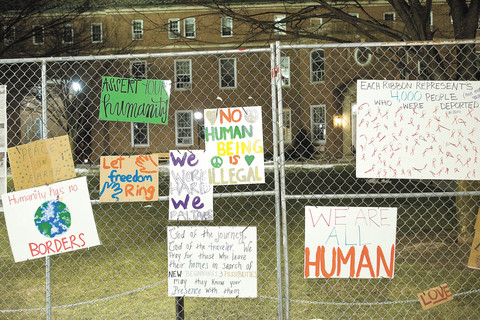 ASSERT YOUR
humanity!
Let
freedom
Ring
Humanity has no
BORDERS
We
WORK
HARD
We
NO
HUMAN
BEING
IS
ILLEGAL
God of the journey,
God of the traveler, We
pray for those who leave
their homes in search of
NEW BEGINNINGS & POSSIBILITIES
may they know your
Presence with them.
EACH RIBBON REPRESENTS
4,000 PEOPLE
WHO WERE DEPORTED
WE ARE
ALL
HUMAN
LOVE